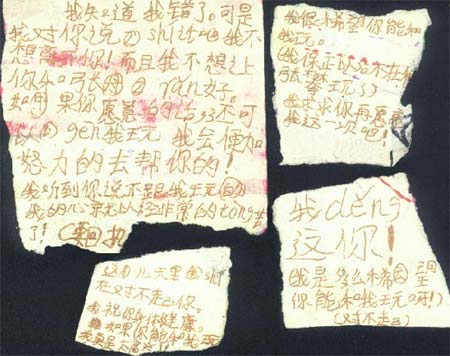 我知道我错了。可是
我对你说的shi话吧我不
想离开你!而且我不想让
你和张rán好。
如果你愿意的话,还可
以gen我玩 我会更加
努力的去帮你的!
我听到你说不跟我玩
我的心京尤以经非常的tong苦
了!
我很希望你能和
我玩。
(我保正以后不在和
张玩了)
我求求你再愿意
我这一次吧!
我děng
这你!
(我是多么希望
你能和我玩呀!)
(对不走己)
这几天里shí
在对不走己你。
祝你身体健康。
如果你能和我玩
我真是太高兴了!